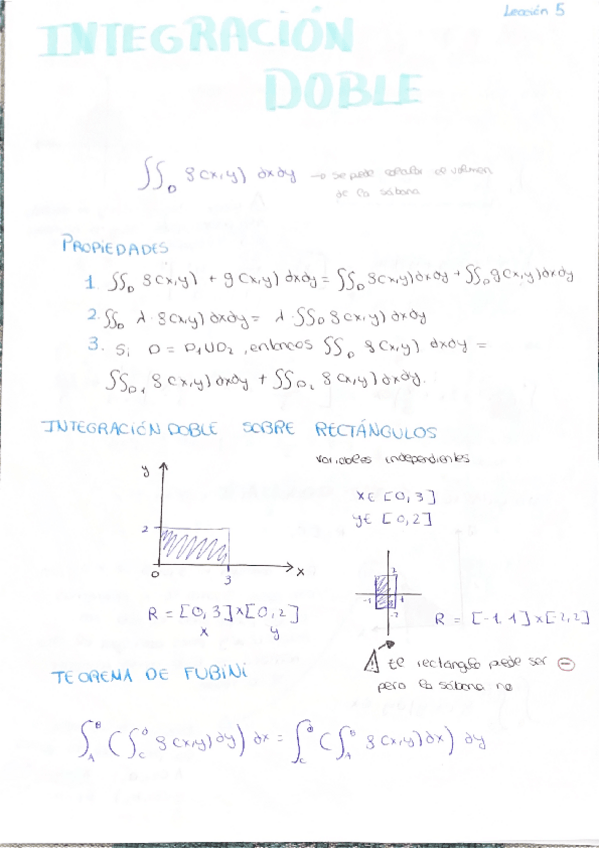 Lección 5
INTEGRACIÓN
DOBLE
∫∫_D f(x,y) dxdy → se puede calcular el volumen
de la sábana
PROPIEDADES
1. ∫∫_D f(x,y) + g(x,y) dxdy = ∫∫_D f(x,y) dxdy + ∫∫_D g(x,y) dxdy
2. ∫∫_D λ · f(x,y) dxdy = λ · ∫∫_D f(x,y) dxdy
3. Si D = D₁UD₂, entonces ∫∫_D f(x,y) dxdy =
∫∫_D₁ f(x,y) dxdy + ∫∫_D₂ f(x,y) dxdy.
INTEGRACIÓN DOBLE SOBRE RECTÁNGULOS
variables independientes
y
x ∈ [0,3]
y ∈ [0,2]
2
0 3 x
2
-1 1
-2
R = [0,3]x[0,2]
x y
R = [-1,1]x[-2,2]
⚠ El rectángulo puede ser ⊖
pero la sábana no
TEOREMA DE FUBINI
∫_A^B (∫_C^D f(x,y) dy) dx = ∫_C^D (∫_A^B f(x,y) dx) dy